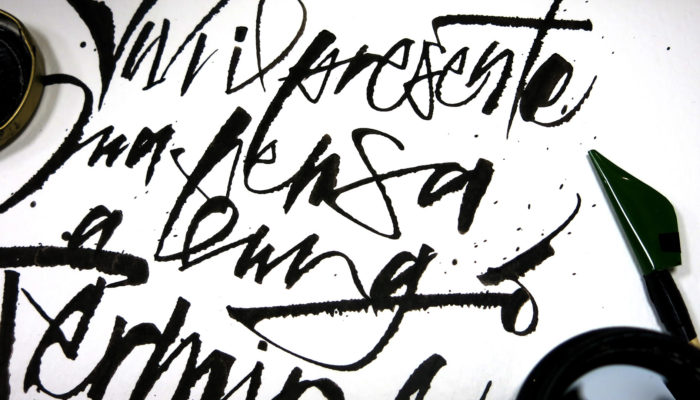 Vivi il presente
ma pensa
a lungo
Termin